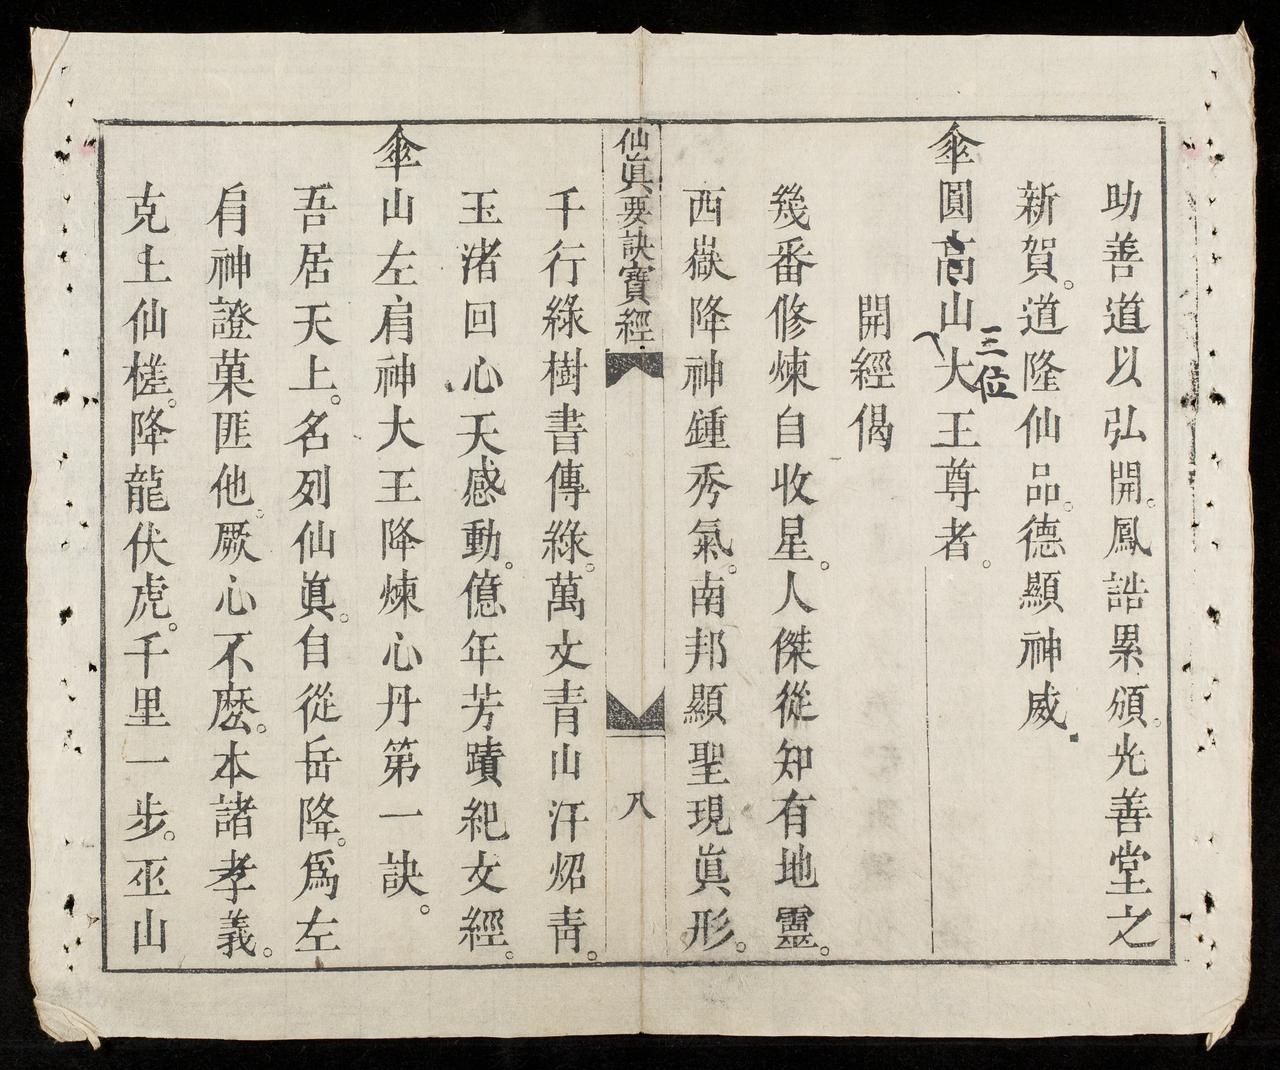 助善道以弘開。鳳誥累頒。光善堂之
新賀。道隆仙品。德顯神威
傘圓高山大王尊者。
三位
開經偈
幾番修煉自收星。人傑從知有地靈。
西嶽降神鍾秀氣。南邦顯聖現眞形。
仙眞要訣寶經
八
千行綠樹書傳綠。萬文青山汗炤靑。
玉渚回心天感動。億年芳蹟紀文經。
傘山左肩神大王降煉心丹第一訣。
吾居天上。名列仙眞。自從岳降。爲左
肩神證菓匪他。厥心不麽。本諸孝義。
克土仙槎。降龍伏虎。千里一步。巫山